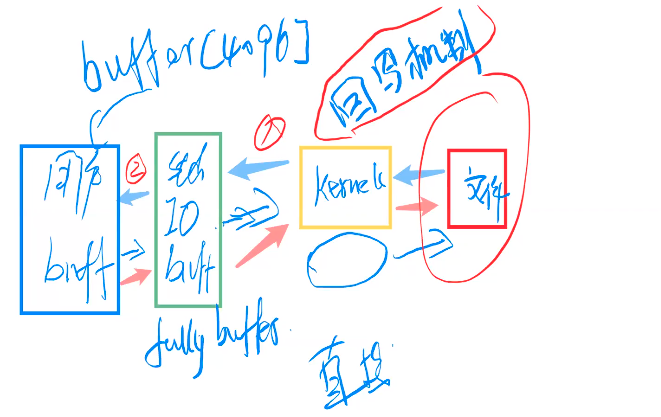 buffer[4096]
回写机制
①
②
用户
buff
std
IO
buff
kernel
文件
fully buffer.
直接